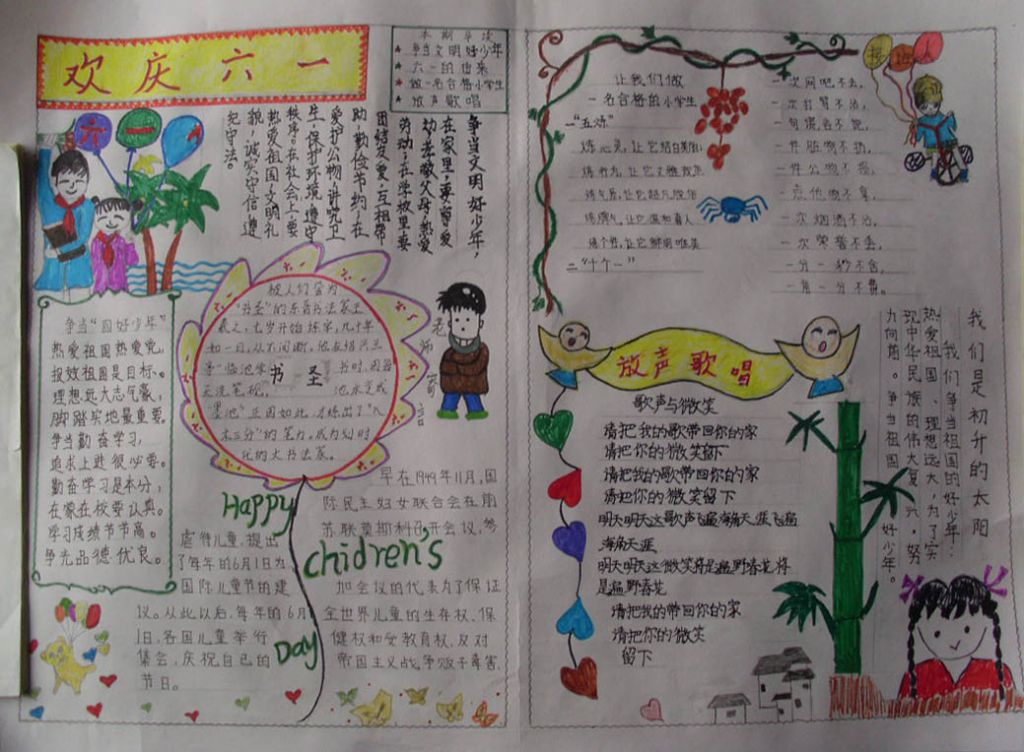 欢庆六一
本期导读
争当文明好少年
六一的由来
做一名合格小学生
放声歌唱
六一
争当文明好少年，
在家里，要尊爱
幼，孝敬父母，热爱
劳动；在学校里要
团结友爱，互相帮
助，勤俭节约，在
爱护公物，讲究卫
生，保护环境，遵守
秩序；在社会上要
热爱祖国，文明礼
貌，诚实守信，遵
纪守法。
争当“四好少年”
热爱祖国热爱党。
报效祖国是目标。
理想远大志气豪，
脚踏实地最重要。
争当勤奋学习，
追求上进很必要。
勤奋学习是本分，
在家在校要认真。
学习成绩节节高。
争先品德优良。
被人们誉为
“书圣”的东晋书法家王
羲之，七岁开始练字，几十年
如一日，从不间断。他在绍兴兰
亭“临池学书”时，因每
天洗笔砚，池水变成
“墨池”正因如此，才练出了“入
木三分”的笔力，成为划时
代的大书法家。
书圣
老师
寄
语
Happy
Chidren's
Day
早在1949年11月，国
际民主妇女联合会在前
苏联莫斯科召开会议，参
加会议的代表为了保证
全世界儿童的生存权、保
健权和受教育权，反对
帝国主义战争贩子毒害、
虐待儿童，提出
了每年的6月1日为
国际儿童节的建
议。从此以后，每年的6月
1日，各国儿童举行
集会，庆祝自己的
节日。
让我们做
一名合格的小学生
一“五炼”
炼心灵，让它结白美丽，
二“十个一”
一次网吧不去，
一次打骂不沾，
一句谎言不说，
一件脏物不扔，
一件公物不损，
一点他物不拿，
一次烟酒不沾，
一分一秒不舍，
一角一分不费。
接班人
放声歌唱
歌声与微笑
请把我的歌带回你的家
请把你的微笑留下
请把我的歌带回你的家
请把你的微笑留下
明天明天这歌声飞遍海角天涯飞遍
海角天涯
明天明天这微笑将是遍野春花将
是遍野春花
请把我的带回你的家
请把你的微笑
留下
我们是初升的太阳
我们争当祖国的好少年：
热爱祖国、理想远大，为了实
现中华民族的伟大复兴，努
力向前。争当祖国好少年。